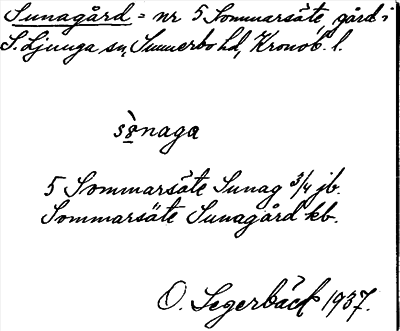 Sunagård = nr 5 Sommarsäte, gård i
S. Ljunga sn, Sunnerbo hd, Kronob. l.
sò̱naga
5 Sommarsäte Sunag 3/4 jb.
Sommarsäte Sunagård kb.
O. Segerbäck 1937.